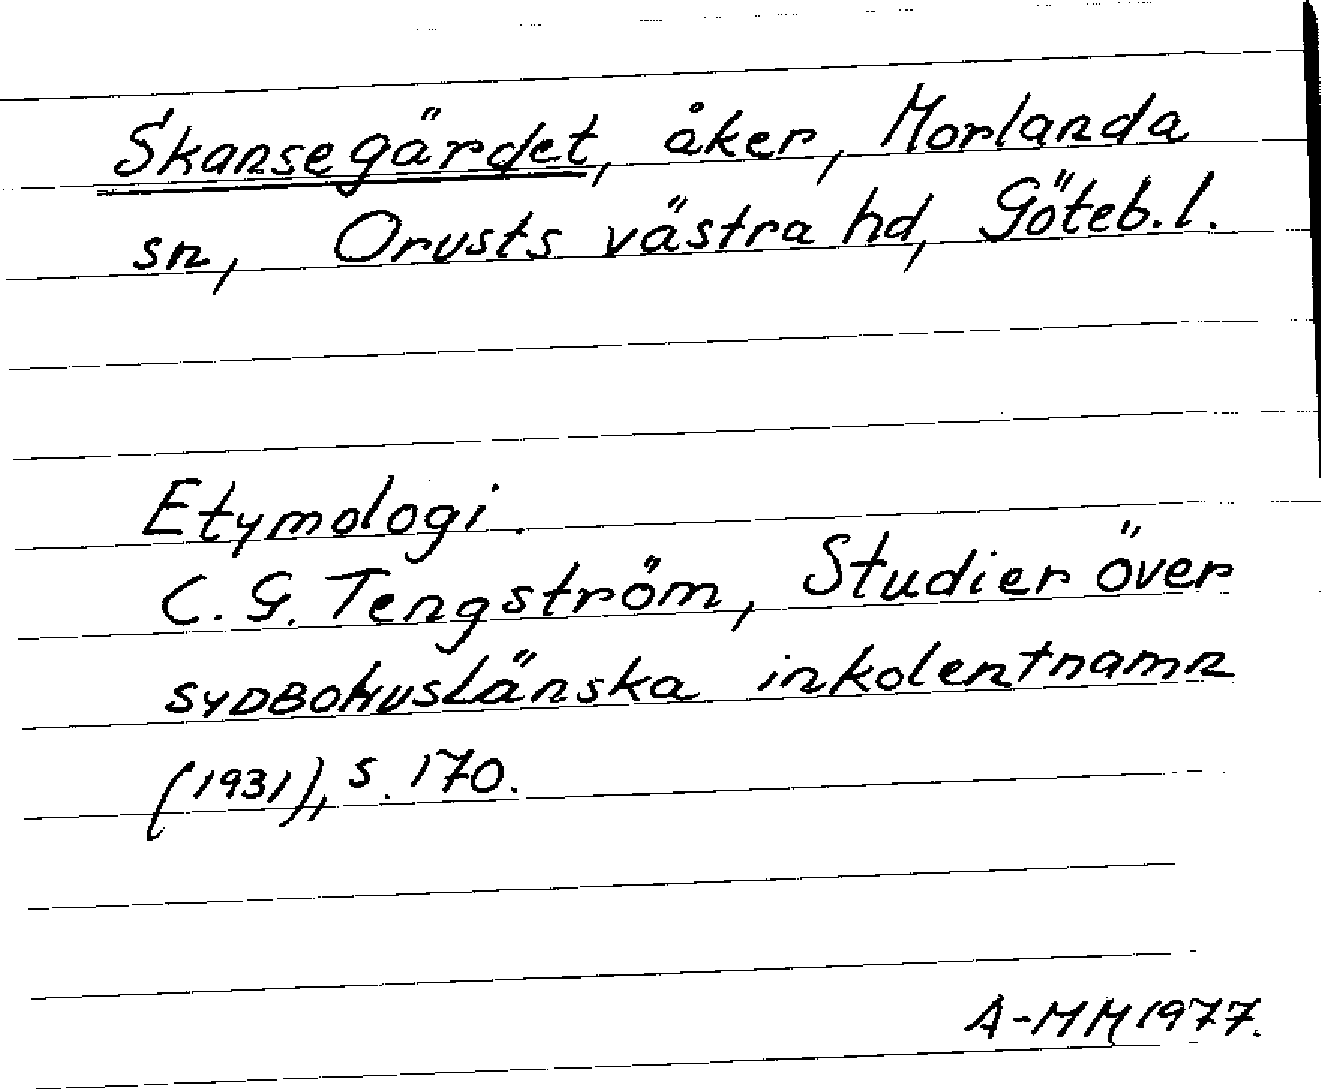 Skansegärdet, åker, Morlanda
sn, Orusts västra hd, Göteb.l.
Etymologi.
C.G. Tengström, Studier över
sydbohuslänska inkolentnamn
(1931), s. 170.
A-MM 1977.